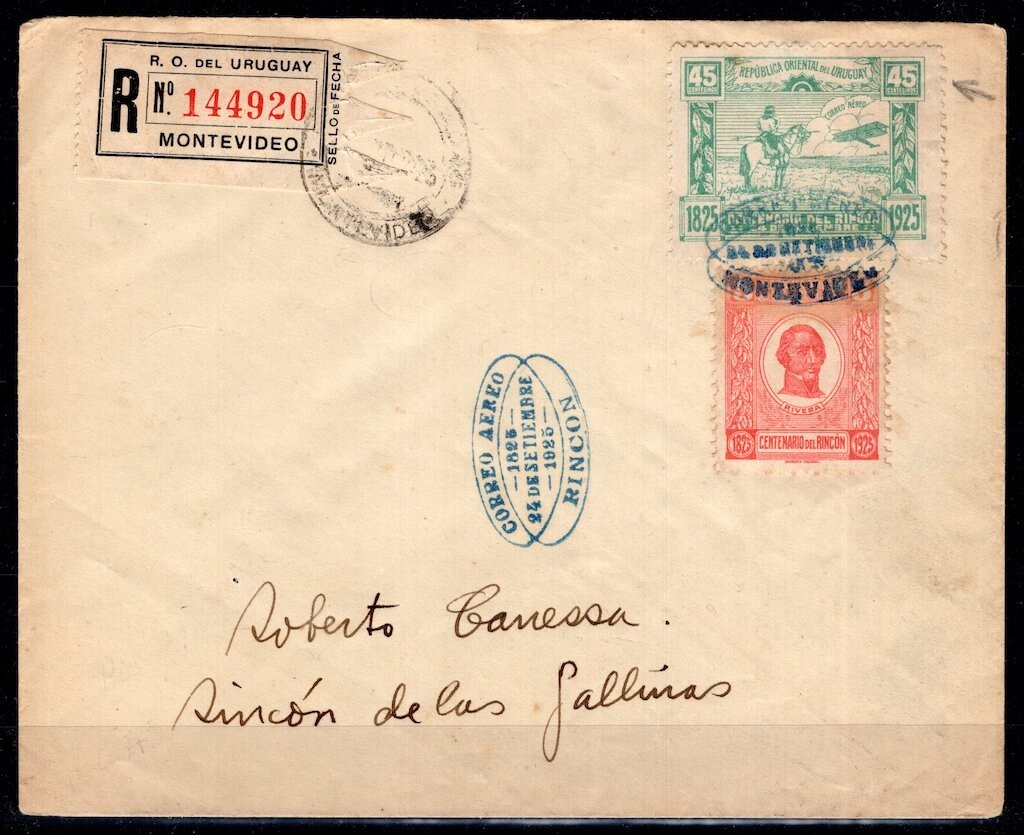 R. O. DEL URUGUAY
R Nº 144920
MONTEVIDEO
SELLO DE FECHA
45 REPÚBLICA ORIENTAL DEL URUGUAY 45
CENTESIMOS CENTESIMOS
CORREO AÉREO
1825 1925
24 DE SETIEMBRE
RIVERA
1825 CENTENARIO DEL RINCÓN 1925
CORREO AEREO
-1825-
24 DE SETIEMBRE
-1925-
RINCON
Roberto Canessa.
Rincón de las Gallinas